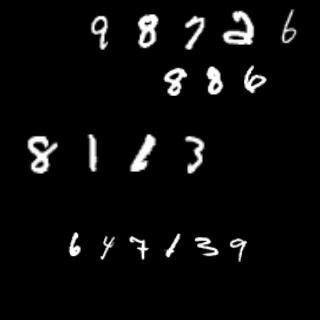 98726
886
8113
647139